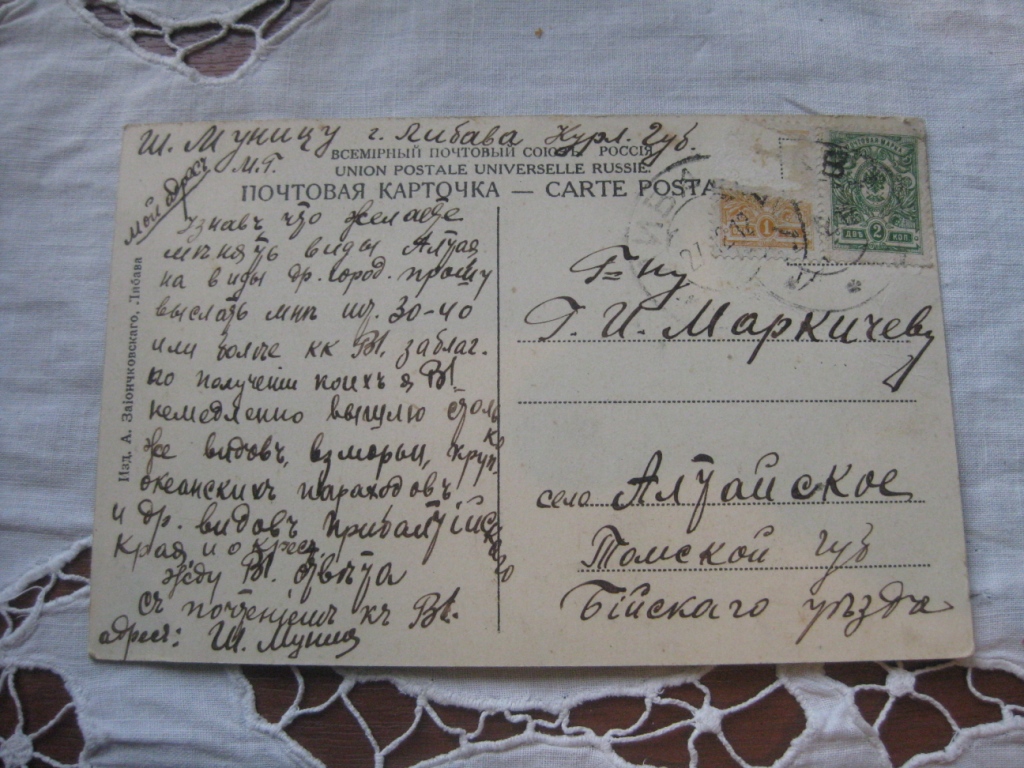 Ш. Муницу г. Либава Курл. Губ.
ВСЕМІРНЫЙ ПОЧТОВЫЙ СОЮЗЪ. РОССІЯ.
UNION POSTALE UNIVERSELLE RUSSIE.
ПОЧТОВАЯ КАРТОЧКА — CARTE POSTA
Мой адресъ
М.Г.
Узнавъ что желаете
мѣнять виды Алтая
на виды др. город. прошу
выслать мнѣ шт. 30-40
или больше къ Вт. заблаг.
по полученіи коихъ я Вт.
немедленно вышлю столь
ко
же видовъ, взморьи, круп.
океанскихъ пароходовъ
и др. видовъ Прибалтійск
аго
Края и окрест.
жду Вт. отвѣта
съ почтеніемъ къ Вт.
адресъ: Ш. Муниц
Изд. А. Заіончковскаго, Либава
ДВѢ 2 КОП
1
Г=ну
Г. И. Маркичеву
село Алтайское
Томской губ
Бійскаго уѣзда